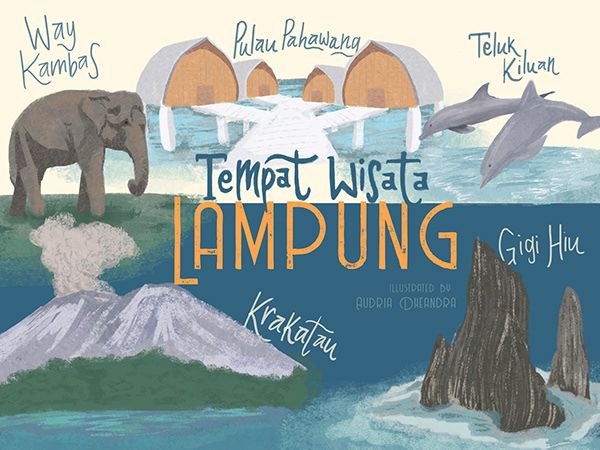 Way
Kambas
Pulau Pahawang
Teluk
Kiluan
Tempat Wisata
LAMPUNG
Gigi Hiu
ILLUSTRATED BY
AUDRIA DHEANDRA
Krakatau